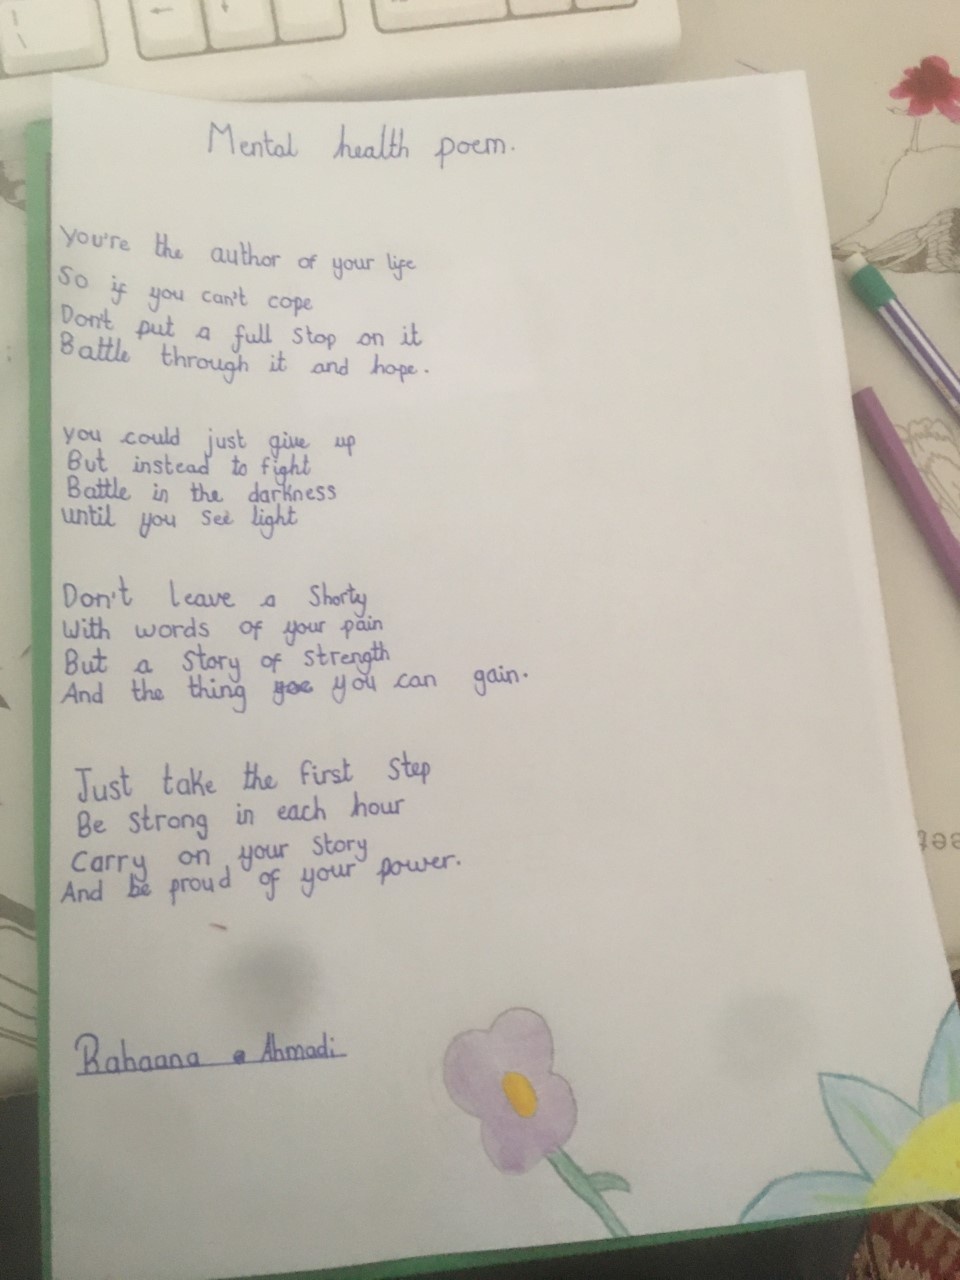 Mental health poem.
You're the author of your life
So if you can't cope
Don't put a full stop on it
Battle through it and hope.
you could just give up
But instead to fight
Battle in the darkness
until you see light
Don't leave a Shorty
With words of your pain
But a Story of strength
And the thing you can gain.
Just take the first step
Be strong in each hour
Carry on your Story
And be proud of your power.
Rahaana Ahmadi